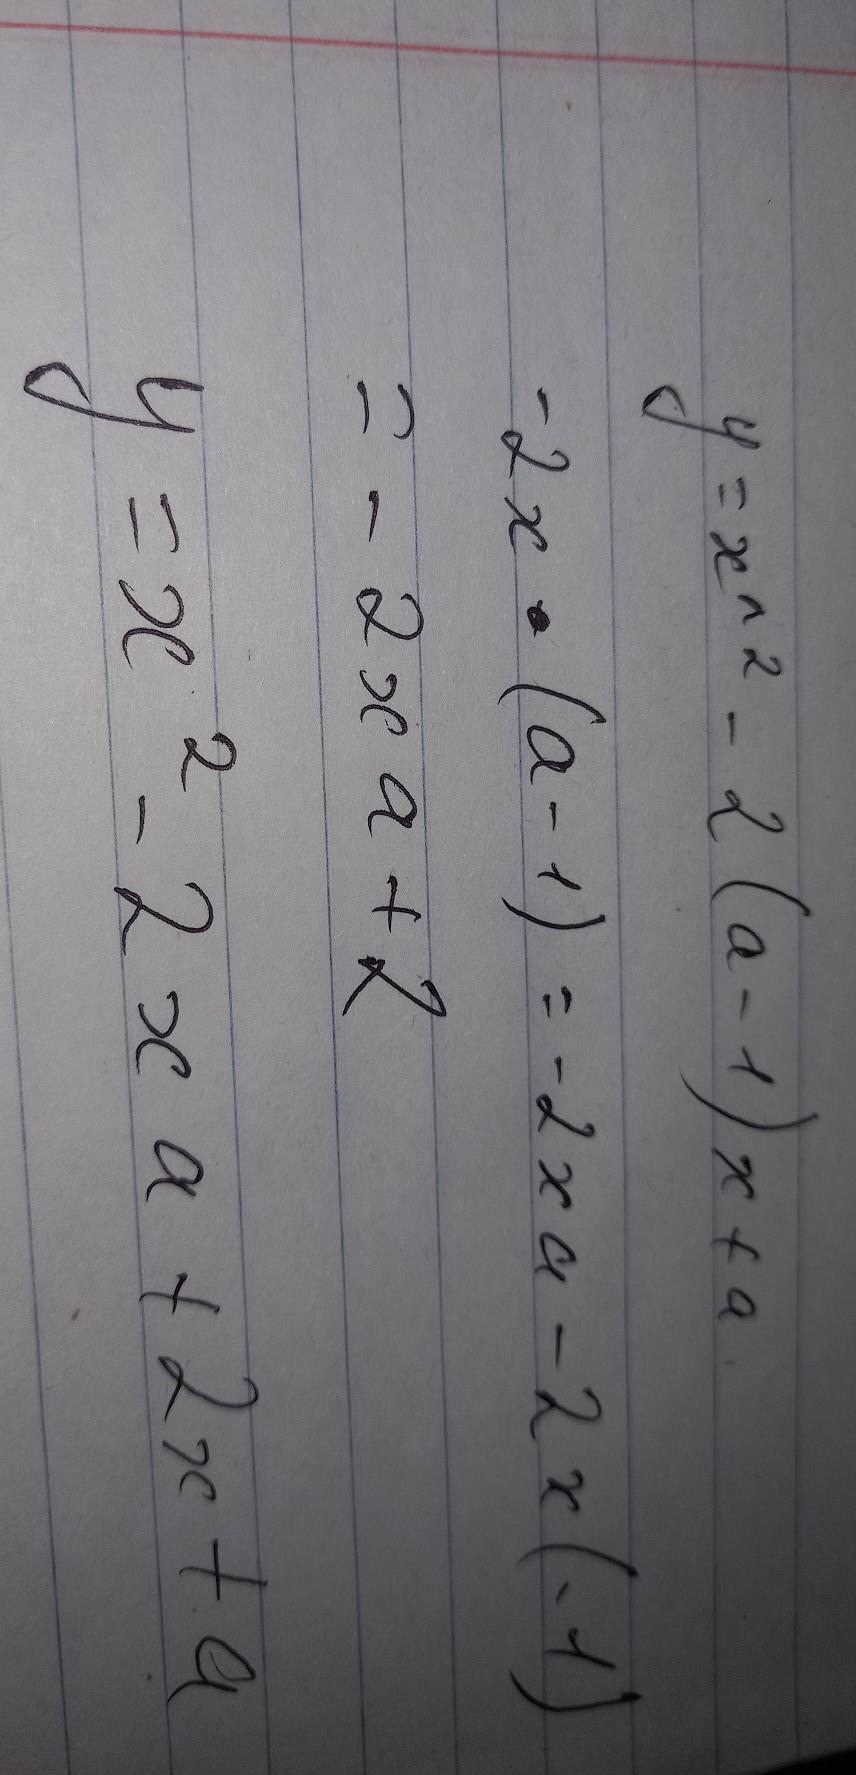 y = x^2 - 2(a-1)x + a
-2x • (a-1) = -2xa - 2x(-1)
= -2xa + 2
y = x² - 2xa + 2x + a